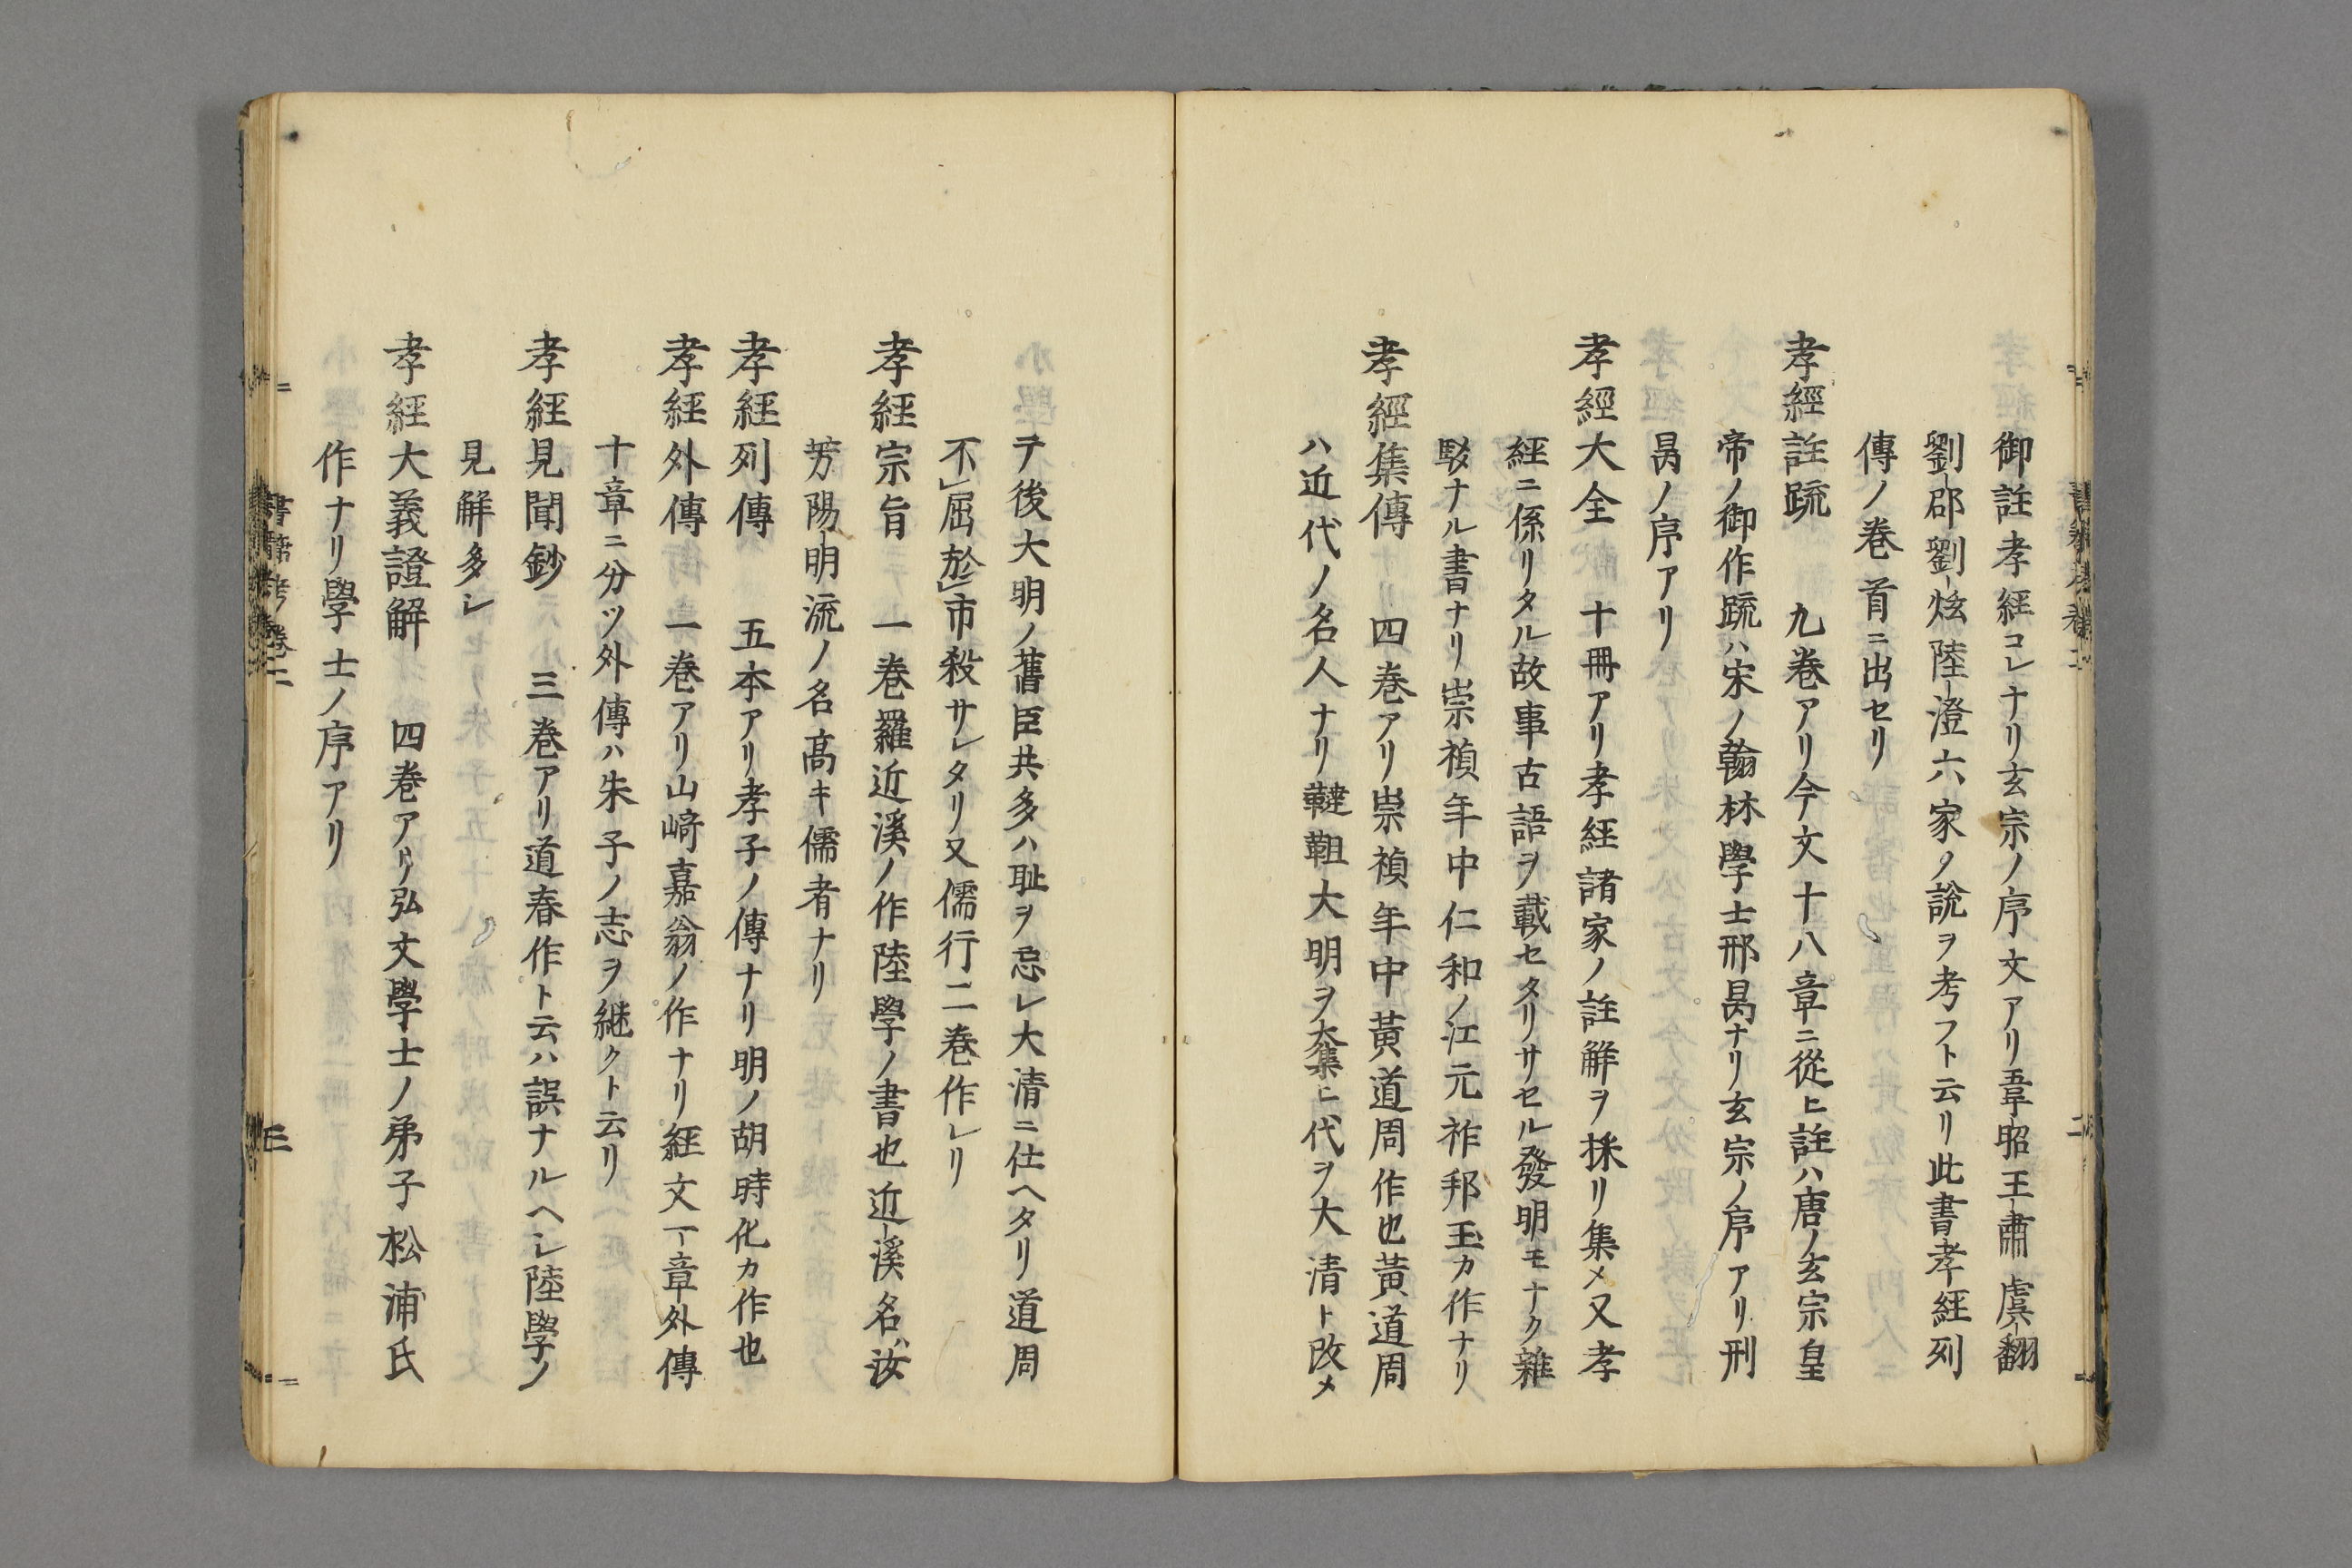 御註孝經コレナリ玄宗ノ序文アリ韋昭王肅虞翻
劉卲劉炫陸澄六家ノ說ヲ考フト云リ此書孝經列
傳ノ巻首ニ出セリ
孝經註疏 九巻アリ今文十八章ニ從ヒ註ハ唐ノ玄宗皇
帝ノ御作疏ハ宋ノ翰林學士邢昺ナリ玄宗ノ序アリ刑
昺ノ序アリ
孝經大全 十冊アリ孝經諸家ノ註解ヲ採リ集メ又孝
經ニ係リタル故事古語ヲ載セタリサセル發明モナク雜
駁ナル書ナリ崇禎年中仁和ノ江元祚邦玉カ作ナリ
孝經集傳 四巻アリ崇禎年中黃道周作也黃道周
ハ近代ノ名人ナリ韃靼大明ヲ奪ヒ代ヲ大清ト改メ
テ後大明ノ舊臣共多ハ耻ヲ忌レ大清ニ仕ヘタリ道周
不屈於市殺サレタリ又儒行二巻作レリ
孝經宗旨 一巻羅近溪ノ作陸學ノ書也近溪名ハ汝
芳陽明流ノ名高キ儒者ナリ
孝經列傳 五本アリ孝子ノ傳ナリ明ノ胡時化カ作也
孝經外傳 一巻アリ山﨑嘉翁ノ作ナリ經文一章外傳
十章ニ分ツ外傳ハ朱子ノ志ヲ継クト云リ
孝經見聞鈔 三巻アリ道春作ト云ハ誤ナルヘシ陸學ノ
見解多シ
孝經大義證解 四巻アリ弘文學士ノ弟子松浦氏
作ナリ學士ノ序アリ
書籍考 巻二
三